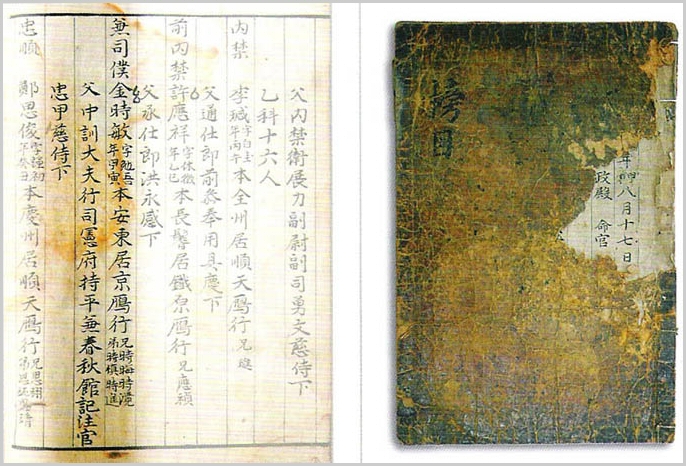 父內禁衛展力副尉副司勇文慈侍下
乙科十六人
內禁 李瑊字白圭年丙午本全州居順天鴈行兄
父通仕郎前叅奉用具慶下
前內禁許應祥字休徵年乙巳本長鬐居鐵原鴈行兄應禎
父承仕郎洪永感下
兼司僕金時敏字勉吾年甲寅本安東居京鴈行兄時晦時弟時愼時進
父中訓大夫行司憲府持平兼春秋館記注官
忠甲慈侍下
忠順 鄭思俊字謹初年癸丑本慶州居順天鴈行兄思翊弟思靖
榜目
年八月十七日
政殿 命官